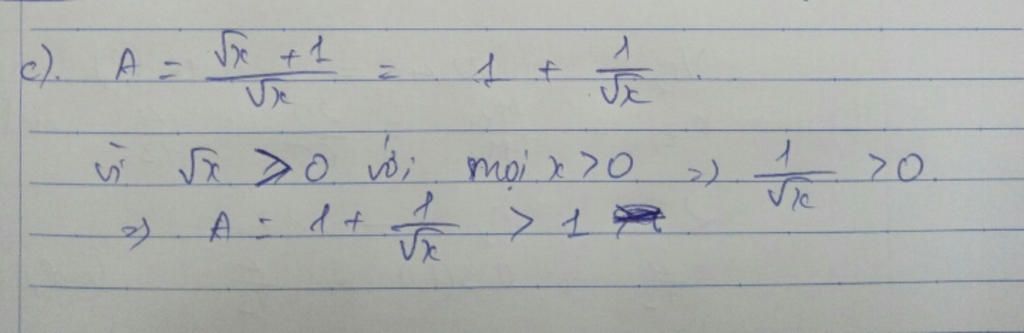 c). A = \frac{\sqrt{x} + 1}{\sqrt{x}} = 1 + \frac{1}{\sqrt{x}}.
vì \sqrt{x} ⩾ 0 với mọi x > 0 => \frac{1}{\sqrt{x}} > 0.
=> A = 1 + \frac{1}{\sqrt{x}} > 1